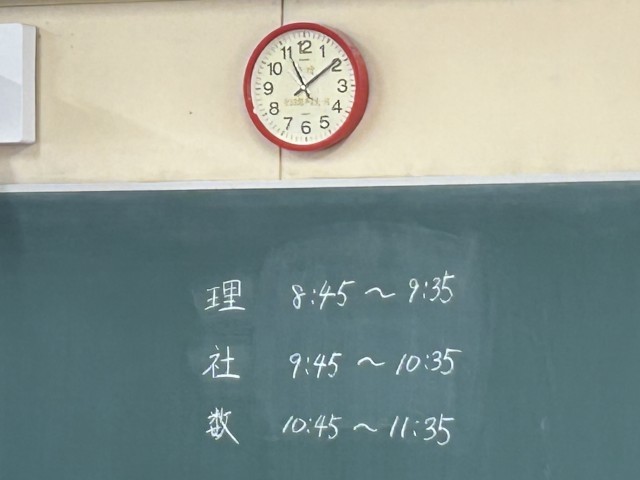 11 12 1
10 2
9 3
8 4
7 6 5
理 8:45～9:35
社 9:45～10:35
数 10:45～11:35